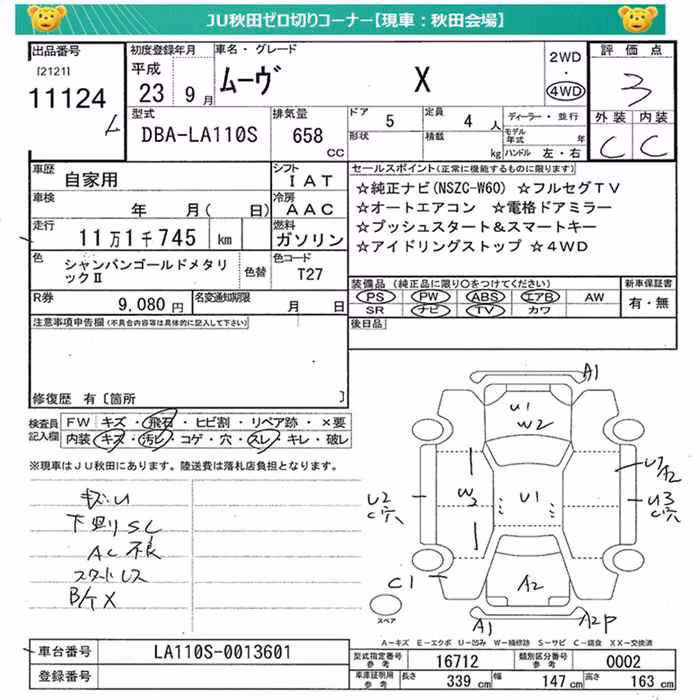 JU秋田ゼロ切りコーナー【現車：秋田会場】
出品番号
[2121]
11124
初度登録年月
平成
23 9月
車名・グレード
ムーヴ X
2WD
・
4WD
評価点
3
外装 内装
C C
型式
DBA-LA110S
排気量
658
CC
ドア 5
形状
定員 4 人
積載 kg
ディーラー・並行
モデル年式 年
ハンドル 左・右
車歴
自家用
シフト
IAT
車検
年 月( 日)
冷房
AAC
走行
11万1千745 km
燃料
ガソリン
色
シャンパンゴールドメタリックⅡ
色替
色コード
T27
R券
9,080円
名変通知期限
月 日
セールスポイント(正常に機能するものに限ります)
☆純正ナビ(NSZC-W60) ☆フルセグTV
☆オートエアコン ☆電格ドアミラー
☆プッシュスタート&スマートキー
☆アイドリングストップ ☆4WD
装備品 (純正品に限り○をつけてください)
新車保証書
PS PW ABS エアB AW
SR ナビ TV カワ
有・無
後日品
注意事項申告欄(不具合内容等は具体的に記入して下さい)
修復歴 有 [箇所 ]
検査員
記入欄
FW キズ・飛石・ヒビ割・リペア跡・×要
内装 キズ・汚レ・コゲ・穴・スレ・キレ・破レ
※現車はJU秋田にあります。陸送費は落札店負担となります。
キズU
下廻りSC
AC不良
スタッドレス
A1
U1
W2
U2
C穴
W3
U1
A2
U3
C穴
C1
A2
A1
A2P
スペア
A-キズ E-エクボ U-凹み W-補修跡 S-サビ C-腐食 XX-交換済
車台番号
LA110S-0013601
登録番号
型式指定番号
参考
16712
類別区分番号
参考
0002
車庫証明用
参考
長さ 339 cm 幅 147 cm 高さ 163 cm